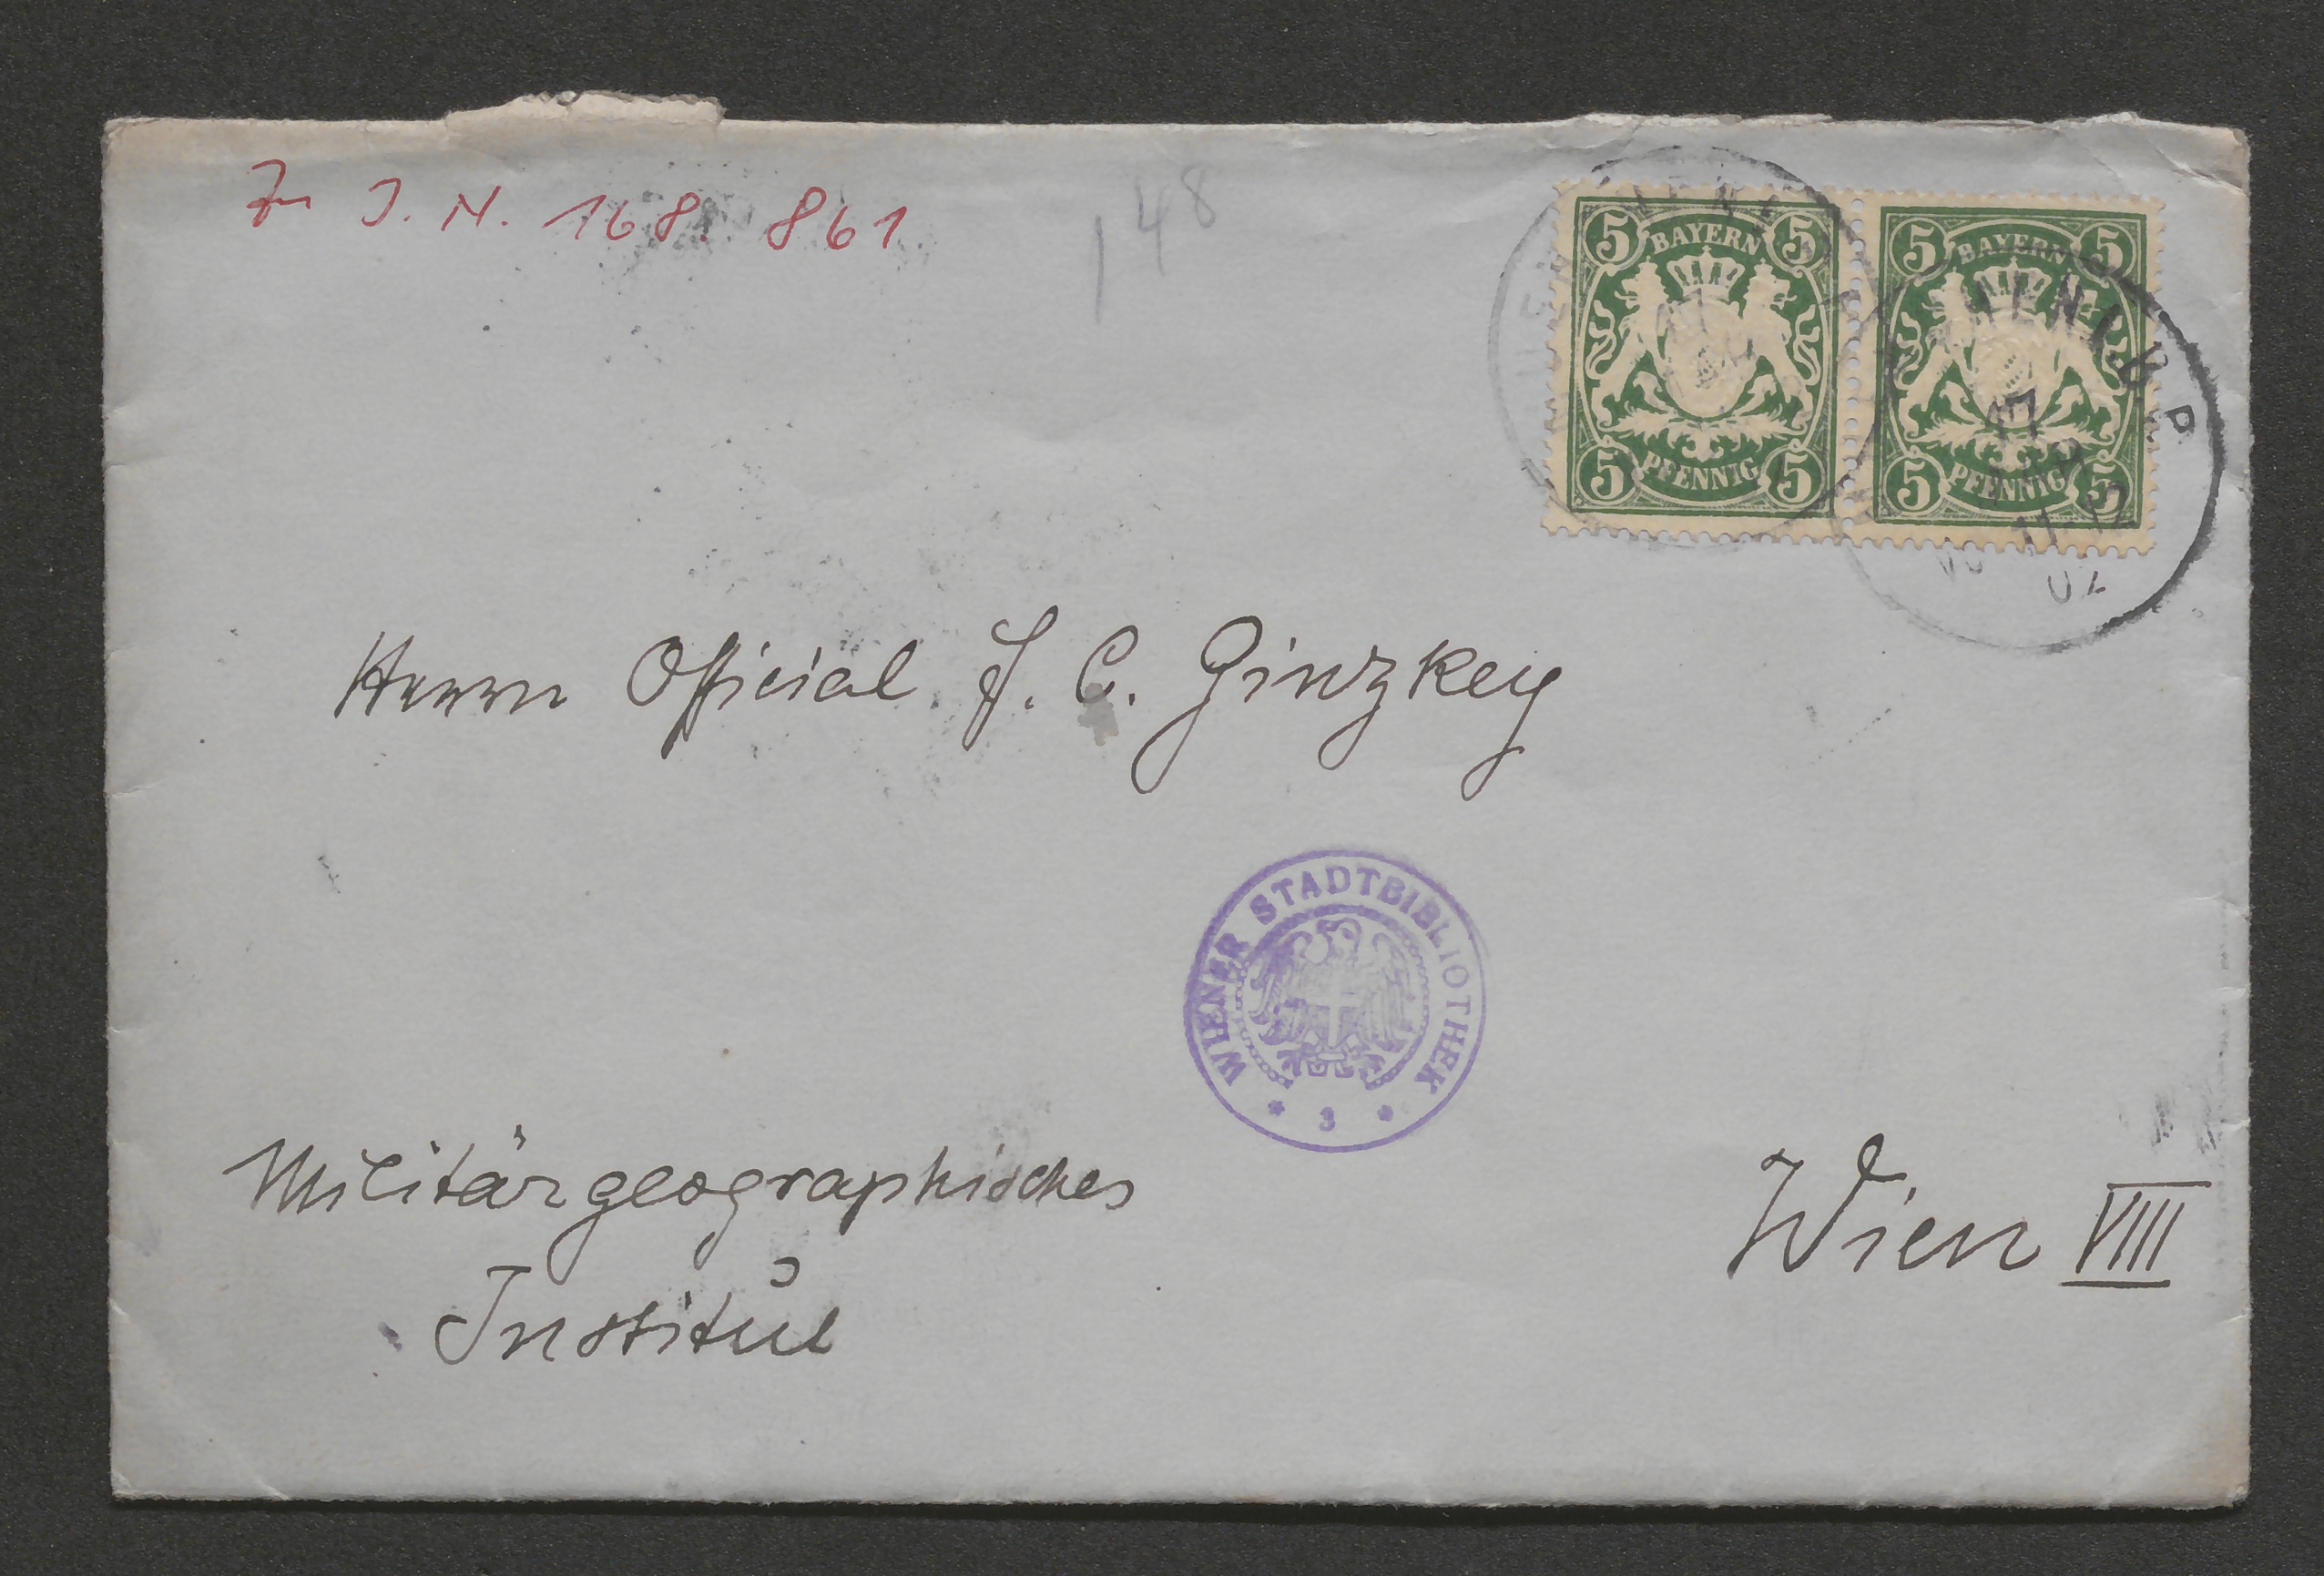 Zu I. N. 168. 861
148
5 BAYERN 5
5 PFENNIG 5
5 BAYERN 5
5 PFENNIG 5
17
11-12
02
Herrn Official F. C. Ginzkey
WIENER STADTBIBLIOTHEK
* 3 *
Militärgeographisches
Institut
Wien VIII